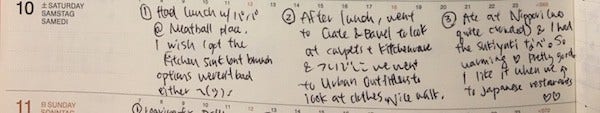 10 土 SATURDAY
SAMSTAG
SAMEDI
① Had lunch w/ パパ
@ Meatball place.
I wish I got the
kitchen sink but brunch
options weren't bad
either ¯\(ツ)/¯
② After lunch, went
to Crate & Barrel to look
at carpets & kitchenware
& ついでに we went
to Urban Outfitters to
look at clothes. Nice walk.
③ Ate at Nippori (was
quite crowded) & I had
the sukiyaki なべ. So
warming ♡ Pretty good
I like it when we go
to Japanese restaurants
♡♡
11 日 SUNDAY
SONNTAG